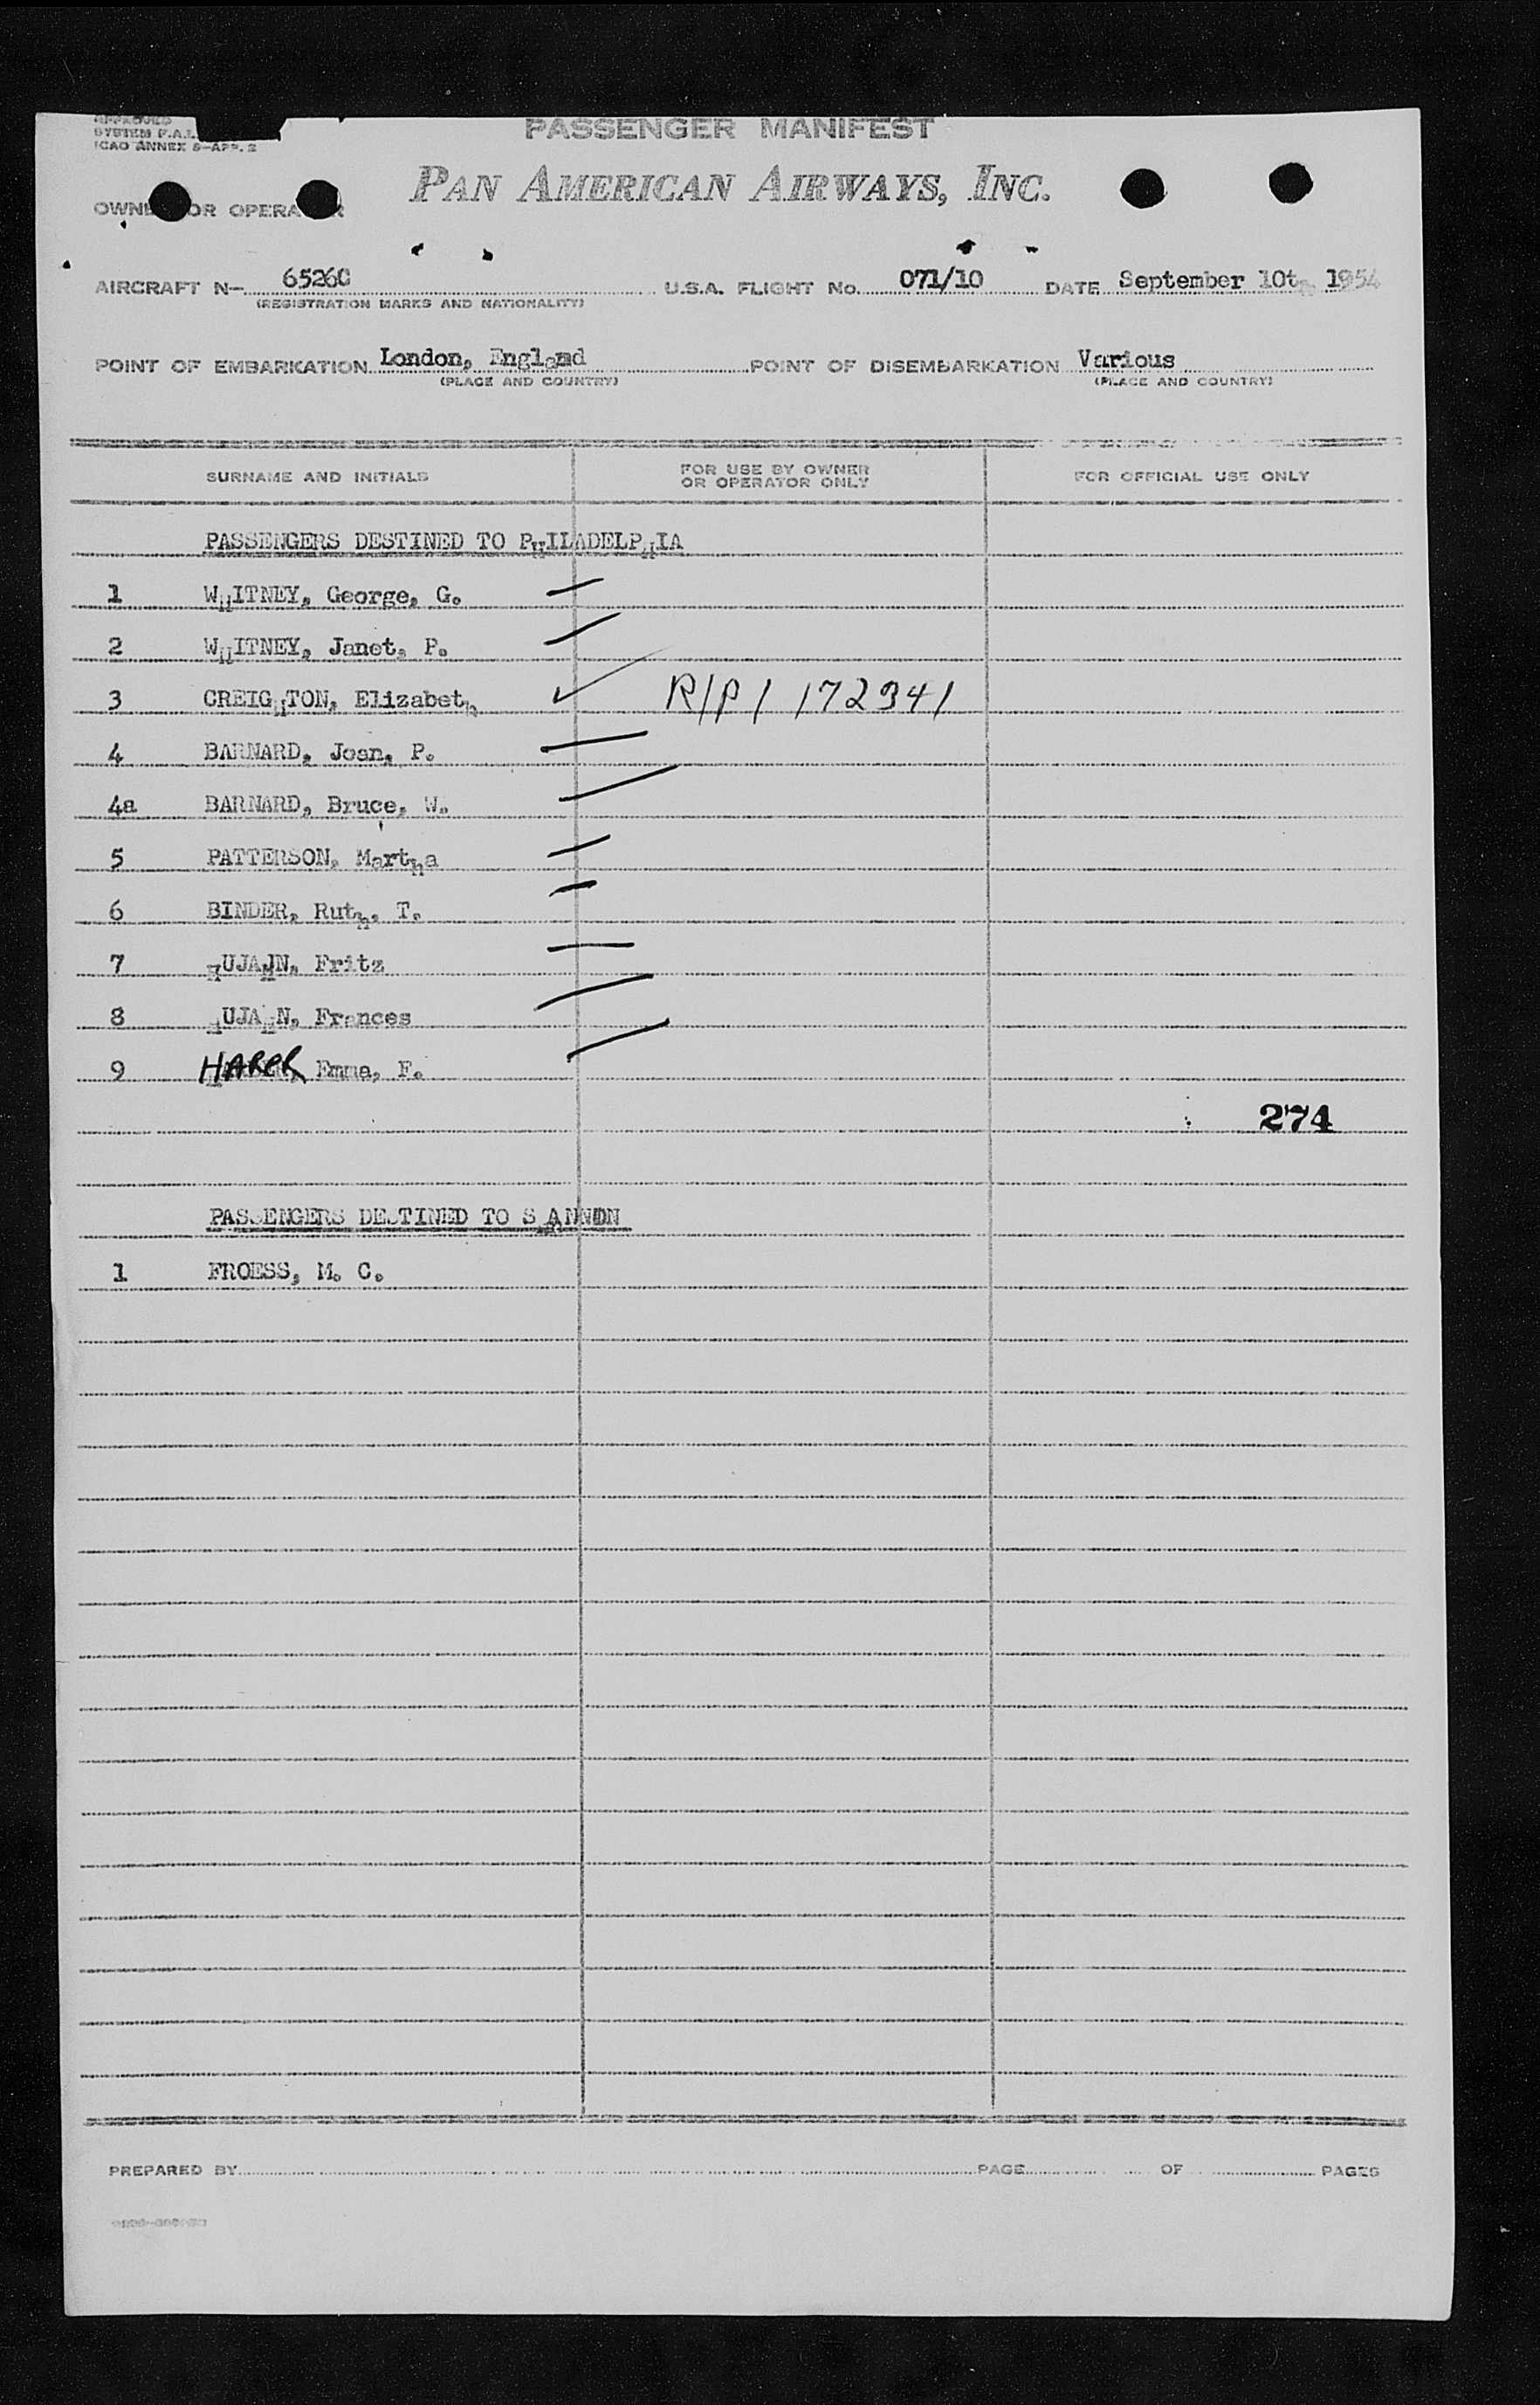 APPROVED
SYSTEM F.A.L.
ICAO ANNEX 9-APP. 2
PASSENGER MANIFEST
OWNER OR OPERATOR PAN AMERICAN AIRWAYS, INC.
AIRCRAFT N- 6526C U.S.A. FLIGHT No. 071/10 DATE September 10th 1954
(REGISTRATION MARKS AND NATIONALITY)
POINT OF EMBARKATION London, England POINT OF DISEMBARKATION Various
(PLACE AND COUNTRY) (PLACE AND COUNTRY)
SURNAME AND INITIALS FOR USE BY OWNER OR OPERATOR ONLY FOR OFFICIAL USE ONLY
PASSENGERS DESTINED TO PHILADELPHIA
1 WHITNEY, George, G.
2 WHITNEY, Janet, P.
3 CREIGHTON, Elizabeth R/P/ 172341
4 BARNARD, Joan, P.
4a BARNARD, Bruce, W.
5 PATTERSON, Martha
6 BINDER, Ruth, T.
7 HUJAHN, Fritz
8 HUJAHN, Frances
9 Emma, F.
274
PASSENGERS DESTINED TO SHANNON
1 FROESS, M. C.
PREPARED BY PAGE OF PAGES